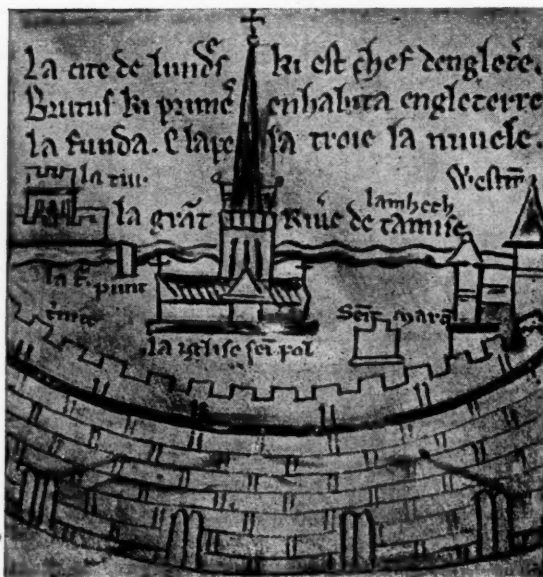 La cite de lundr̃s ki est chef dengleterẽ.
Brutus ki primeͬ enhabita engleterre
la funda. E lapela troie la nuuele.
la tur
Westm̃
lambeth
la grãt Riuẽ de tamise
la t̃
punt
Seint Mar
la iglise sein pol